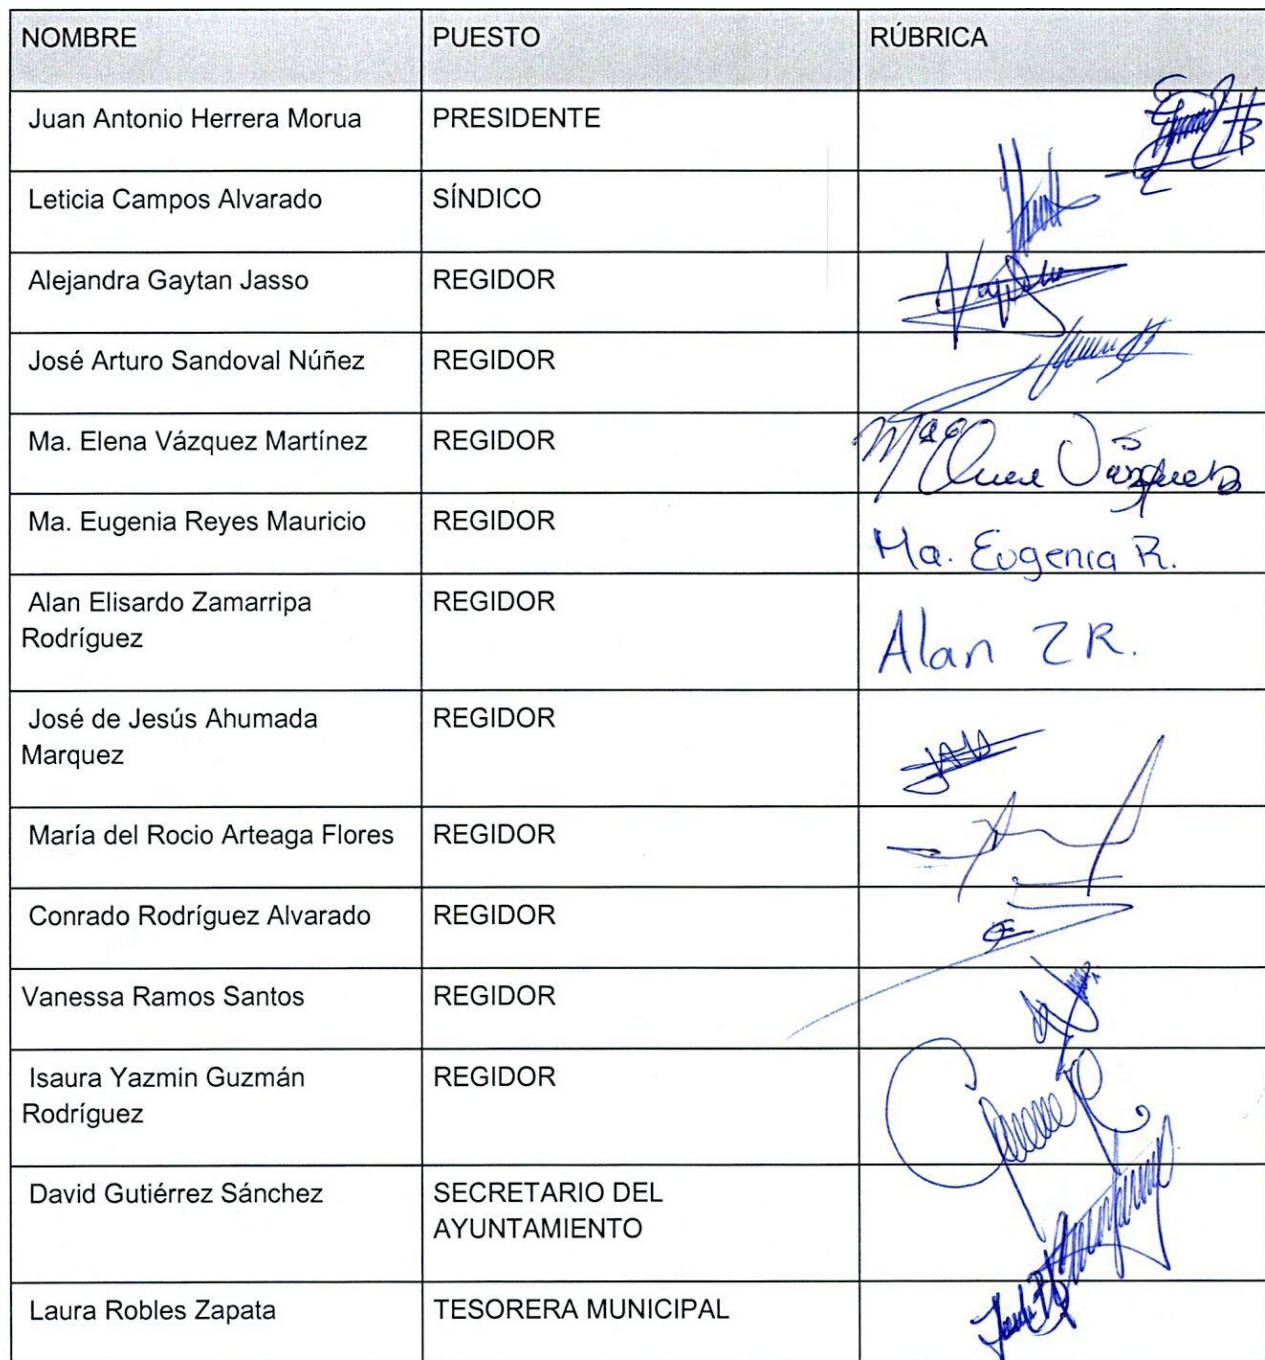 NOMBRE PUESTO RÚBRICA
Juan Antonio Herrera Morua PRESIDENTE
Leticia Campos Alvarado SÍNDICO
Alejandra Gaytan Jasso REGIDOR
José Arturo Sandoval Núñez REGIDOR
Ma. Elena Vázquez Martínez REGIDOR
Ma. Eugenia Reyes Mauricio REGIDOR Ma. Eugenia R.
Alan Elisardo Zamarripa REGIDOR
Rodríguez Alan Z R.
José de Jesús Ahumada REGIDOR
Marquez
María del Rocio Arteaga Flores REGIDOR
Conrado Rodríguez Alvarado REGIDOR
Vanessa Ramos Santos REGIDOR
Isaura Yazmin Guzmán REGIDOR
Rodríguez
David Gutiérrez Sánchez SECRETARIO DEL
AYUNTAMIENTO
Laura Robles Zapata TESORERA MUNICIPAL